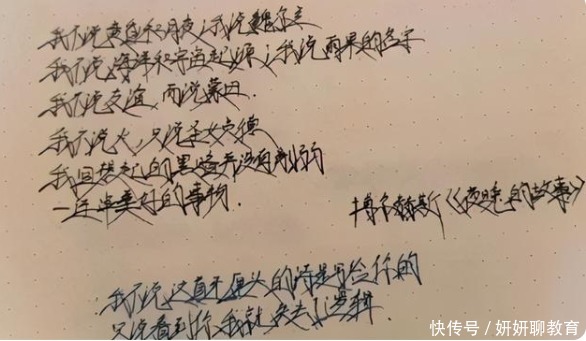 我不说黄昏和月夜；我说魏尔兰
我不说海洋和宇宙起源；我说雨果的名字
我不说友谊，而说蒙田.
我不说火，只说圣女贞德
我回想起的黑暗并没有削的
一连串美好的事物.
博尔赫斯《夜晚的故事》
我不说这真不是头的诗是写给你的
只说看到你,我就失去了逻辑.
快传号／妍妍聊教育